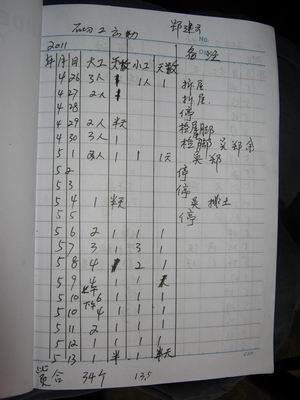 砌工考勤
郑建方
2011
年 月 日 大工 天数 小工 天数 备注
4 26 3人 1 1人 1 拆屋
4 27 2人 拆屋
4 28 停
4 29 2人 半天 捡屋脚
4 30 3人 1 捡脚 吴郑余
5 1 2人 1 1 1天 吴郑
5 2 停
5 3 停
5 4 1 半天 吴 挑土
5 5 停
5 6 2 1 1 1
5 7 3 1 3 1
5 8 4 1 2 1
5 9 4 1 1
5 10 上午 6 1 1 1
5 10 下午 4 1 1 1
5 11 2 1 1 1
5 12 1 1 1 1
5 13 1 半 1 半天
合 34个 13.5